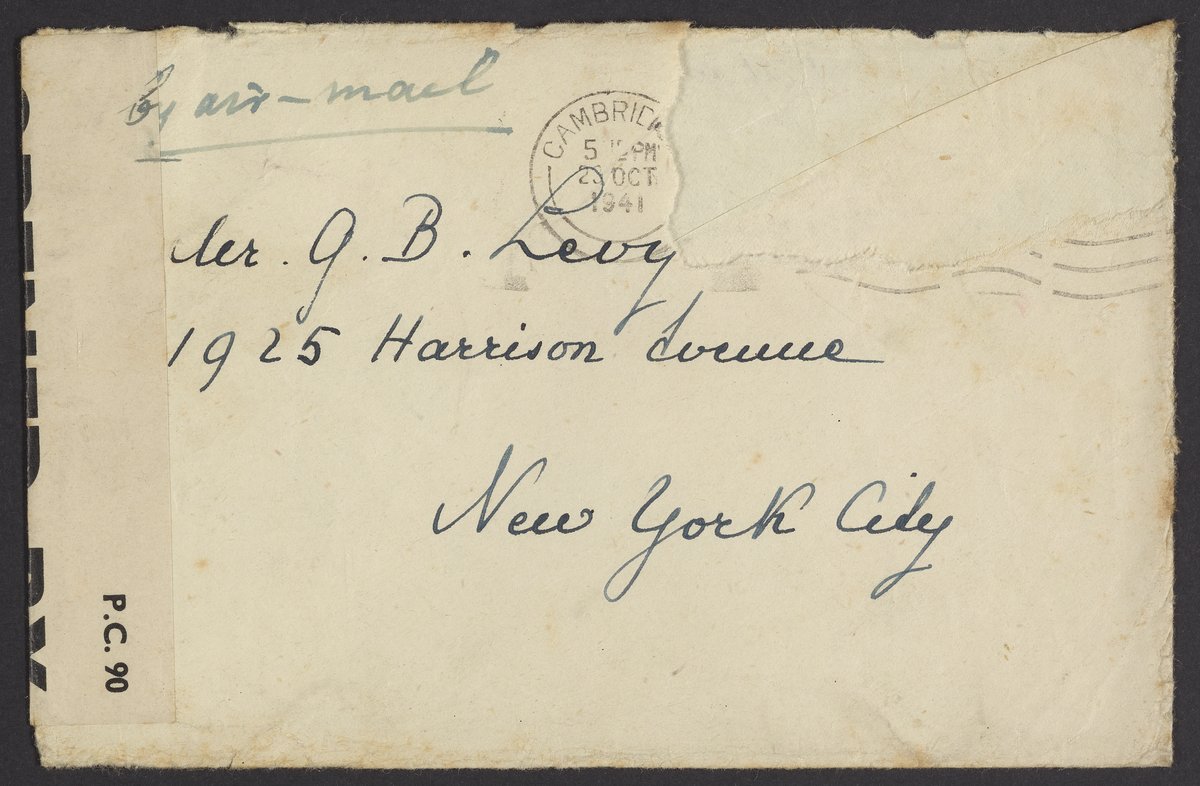 by air-mail
CAMBRID
5 PM
OCT
1941
Mr. G. B. Levy
1925 Harrison Avenue
New York City
OPENED BY
P.C. 90